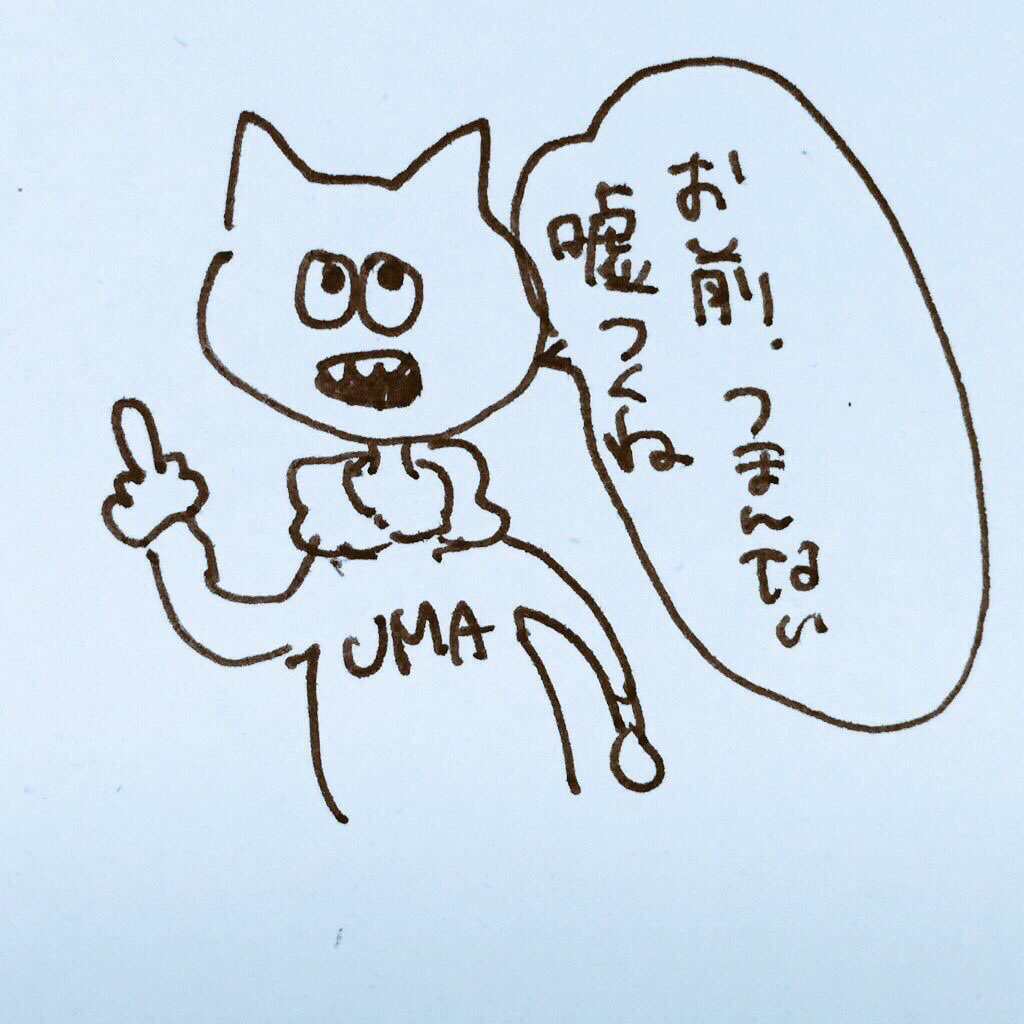 お前、つまんない
嘘つくね
UMA